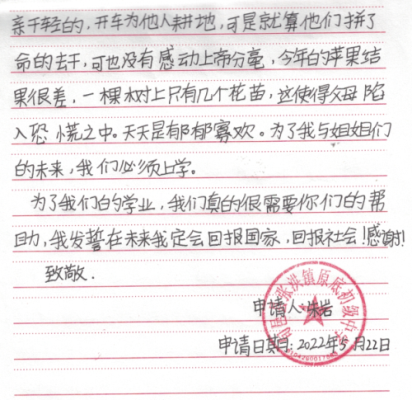 亲千轻的，开车为他人耕地，可是就算他们拼了
命的去干，可也没有感动上帝分毫，今年的苹果结
果很差，一棵树上只有几个花苗，这使得父母陷
入恐慌之中。天天是郁郁寡欢。为了我与姐姐们
的未来，我们必须上学。
为了我们的学业，我们真的很需要你们的帮
助，我发誓在未来我定会回报国家，回报社会！感谢！
致敬.
申请人：朱岩
申请日期：2022年5月22日
张洪镇原底初级中